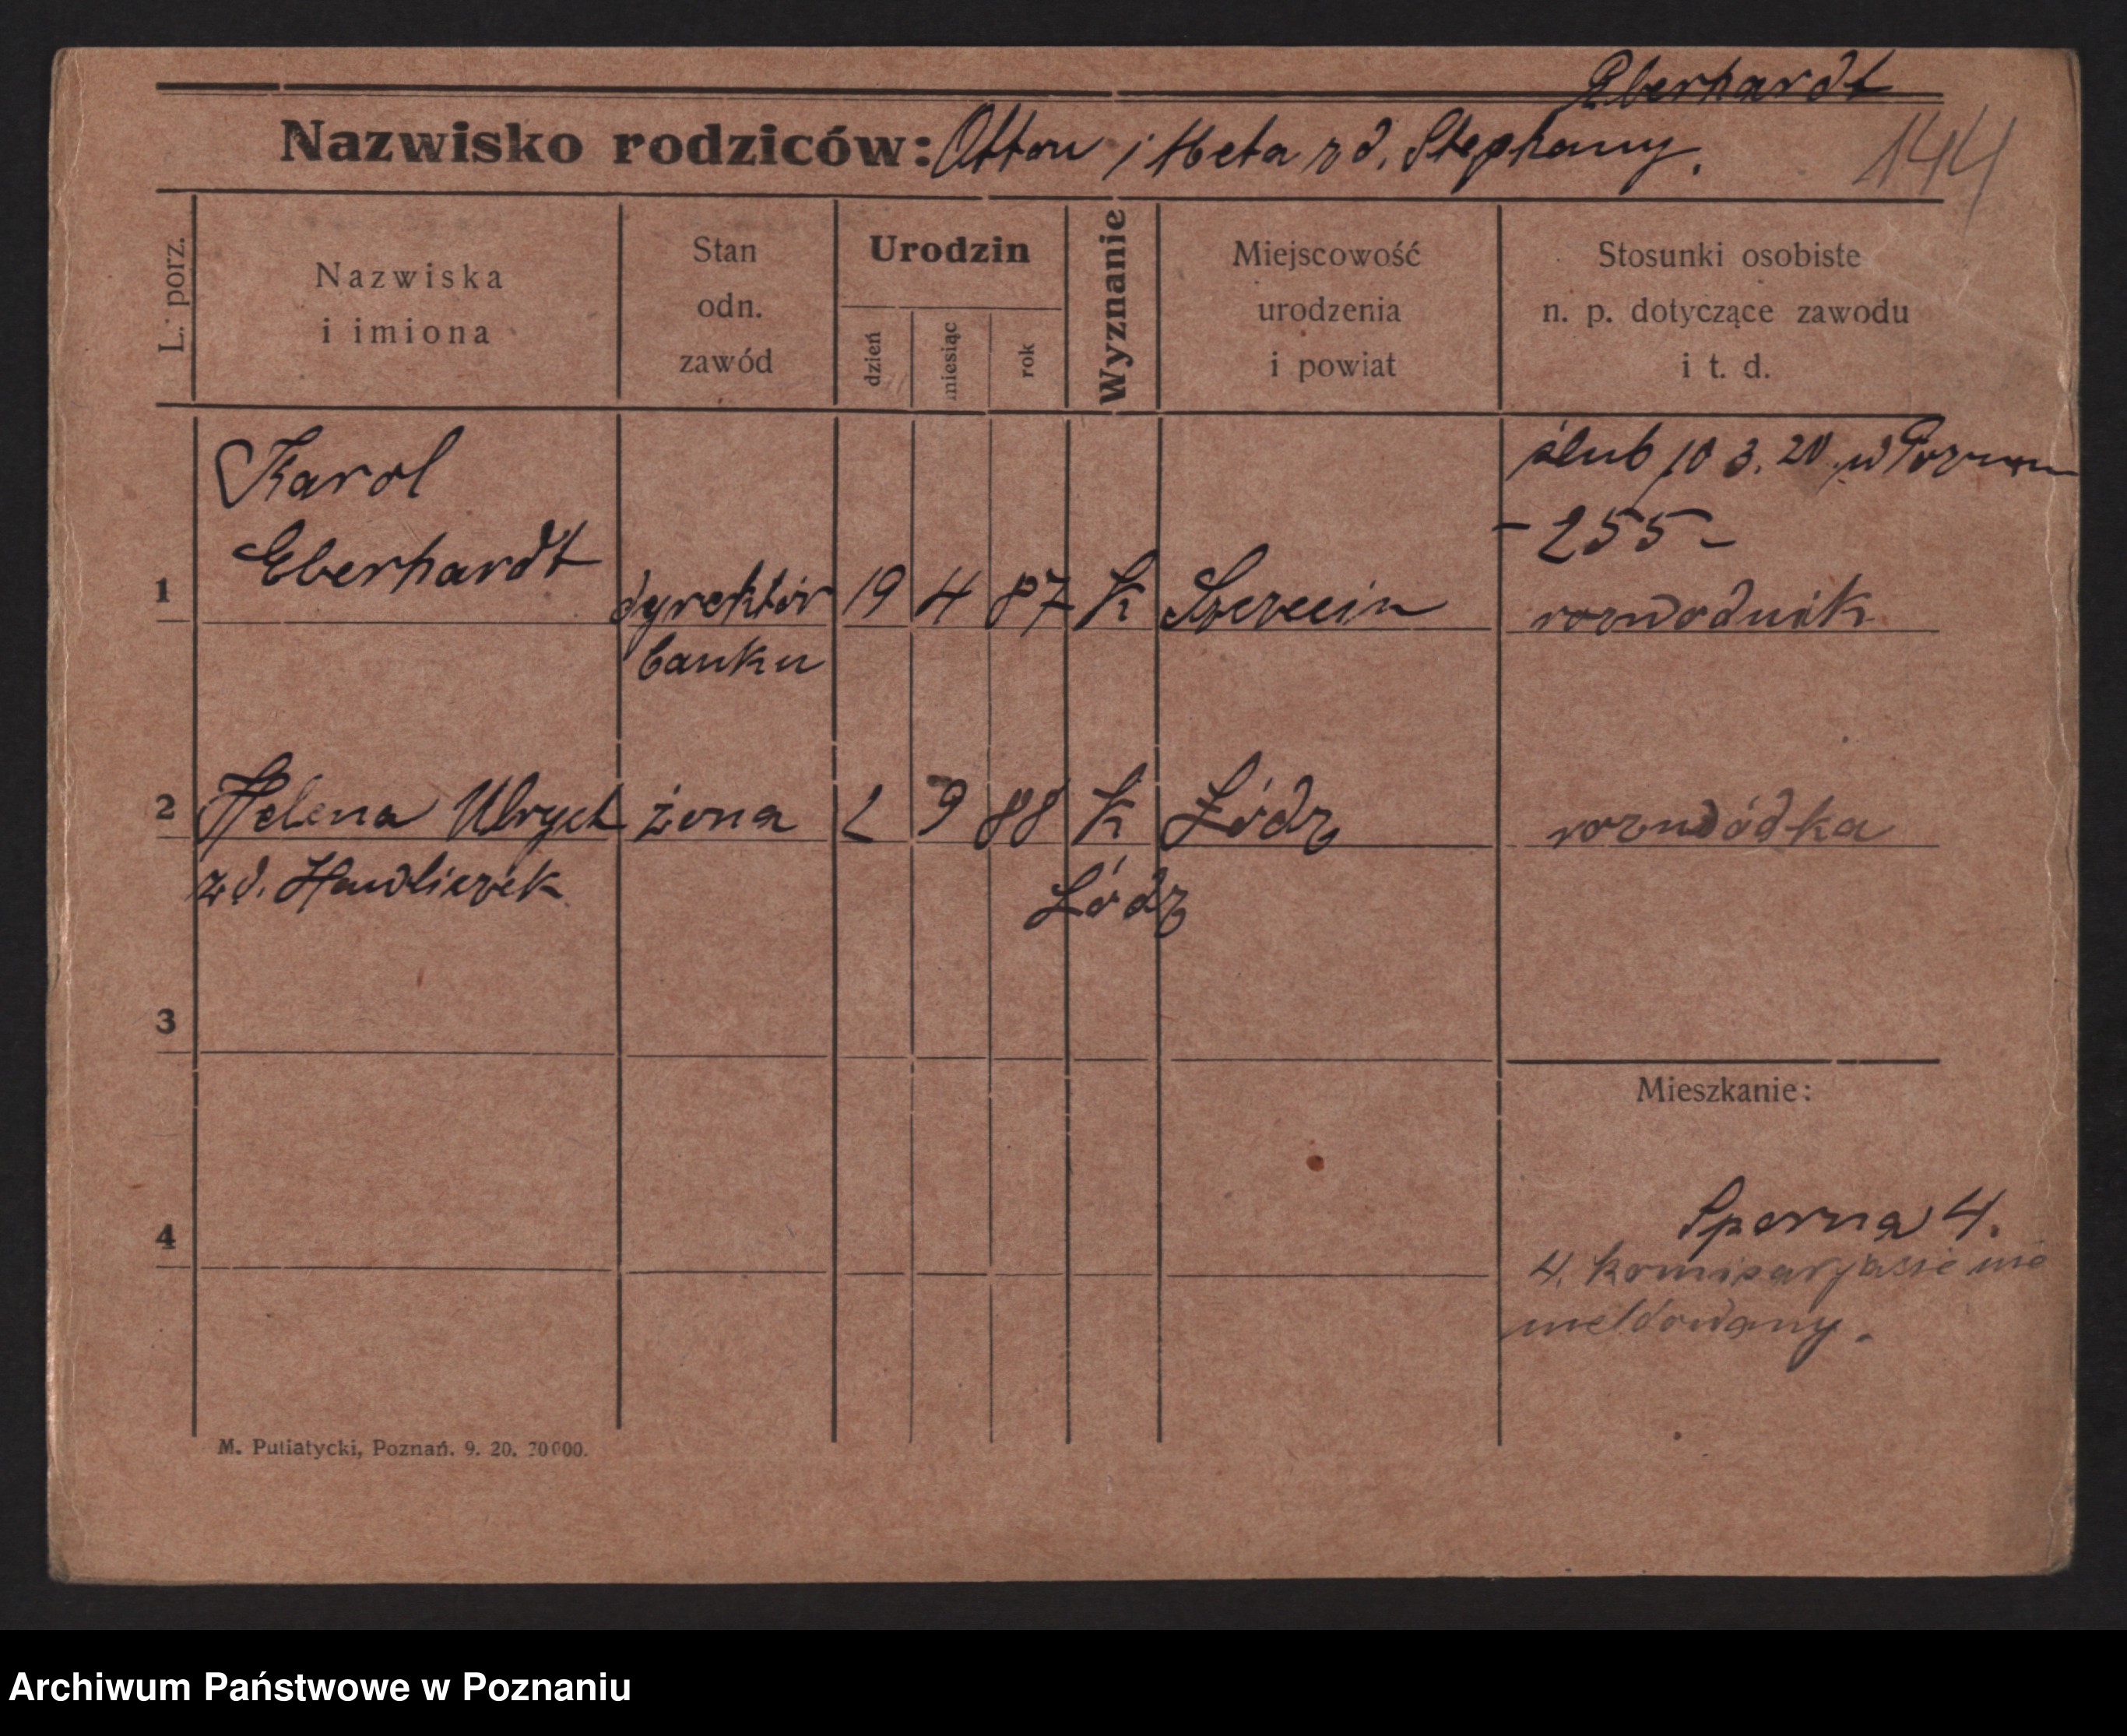 Eberhardt
Nazwisko rodziców: Otton i Meta z d. Stephany.
144
L. porz.
Nazwiska
i imiona
Stan
odn.
zawód
Urodzin
dzień
miesiąc
rok
Wyznanie
Miejscowość
urodzenia
i powiat
Stosunki osobiste
n. p. dotyczące zawodu
i t. d.
ślub 10 3. 20. w Poznan
- 255 -
Karol
Eberhardt
1 dyrektór 19 4 87 K Szczecin rozwodnik
banku
2 Helena Ulrych żona 2 9 88 K Łódz rozwódka
z d. Hawliczek
Łódz
3
Mieszkanie:
Sporna 4.
4
4. komisaryasie nie
meldowany.
M. Putiatycki, Poznań. 9. 20. 20000.
Archiwum Państwowe w Poznaniu